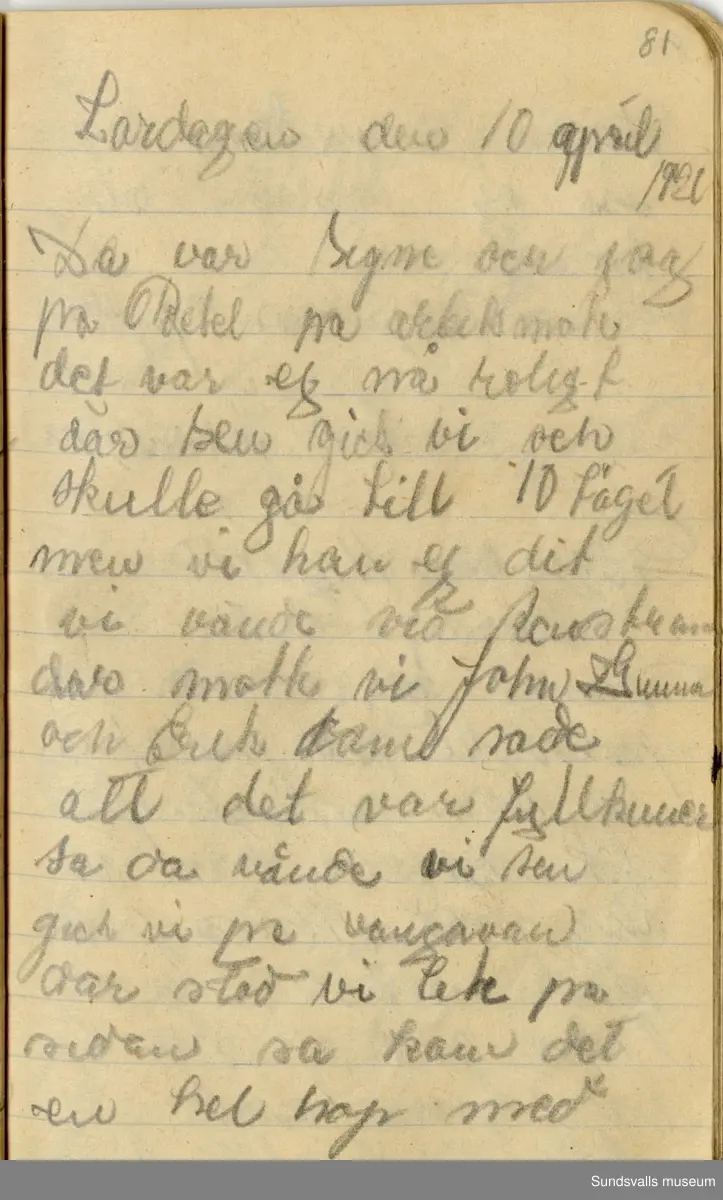 81
Lördagen den 10 april
1920
Da var Signe och jag
på Betel på arbetsmöte
det var ej nå roligt
där sen gick vi och
skulle gå till 10 tåget
men vi han ej dit
vi vände vid
där mötte vi John Gunnar
och Erik dom sade
att det var
så då vände vi sen
gick vi på
där stod vi lek på
sidan så kom det
en hel hop med
Sundsvalls museum